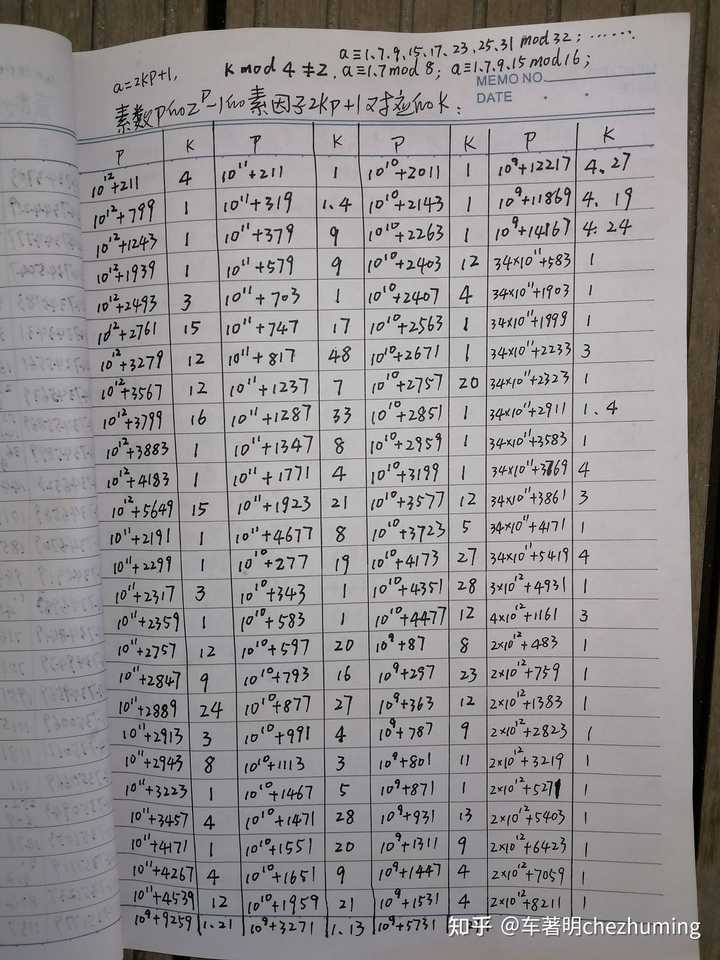 a≡1、7、9、15、17、23、25、31 mod 32；……
a=2kp+1, K mod 4 ≠2, a≡1、7 mod 8； a≡1、7、9、15 mod 16；
MEMO NO.
DATE
素数P的2^P-1的素因子2kp+1对应的K：
P K P K P K P K
10^12+211 4 10^11+211 1 10^10+2011 1 10^9+12217 4、27
10^12+799 1 10^11+319 1、4 10^10+2143 1 10^9+11869 4、19
10^12+1243 1 10^11+379 9 10^10+2263 1 10^9+14167 4、24
10^12+1939 1 10^11+579 9 10^10+2403 12 34×10^11+583 1
10^12+2493 3 10^11+703 1 10^10+2407 4 34×10^11+1903 1
10^12+2761 15 10^11+747 17 10^10+2563 1 34×10^11+1999 1
10^12+3279 12 10^11+817 48 10^10+2671 1 34×10^11+2233 3
10^12+3567 12 10^11+1237 7 10^10+2757 20 34×10^11+2323 1
10^12+3799 16 10^11+1287 33 10^10+2851 1 34×10^11+2911 1、4
10^12+3883 1 10^11+1347 8 10^10+2959 1 34×10^11+3583 1
10^12+4183 1 10^11+1771 4 10^10+3199 1 34×10^11+3769 4
10^12+5649 15 10^11+1923 21 10^10+3577 12 34×10^11+3861 3
10^11+2191 1 10^11+4677 8 10^10+3723 5 34×10^11+4171 1
10^11+2299 1 10^10+277 19 10^10+4173 27 34×10^11+5419 4
10^11+2317 3 10^10+343 1 10^10+4351 28 3×10^12+4931 1
10^11+2359 1 10^10+583 1 10^10+4477 12 4×10^12+1161 3
10^11+2757 12 10^10+597 20 10^9+87 8 2×10^12+483 1
10^11+2847 9 10^10+793 16 10^9+297 23 2×10^12+759 1
10^11+2889 24 10^10+877 27 10^9+363 12 2×10^12+1383 1
10^11+2913 3 10^10+991 4 10^9+787 9 2×10^12+2823 1
10^11+2943 8 10^10+1113 3 10^9+801 11 2×10^12+3219 1
10^11+3223 1 10^10+1467 5 10^9+871 1 2×10^12+5271 1
10^11+3457 4 10^10+1471 28 10^9+931 13 2×10^12+5403 1
10^11+4171 1 10^10+1551 20 10^9+1311 9 2×10^12+6423 1
10^11+4267 4 10^10+1651 9 10^9+1447 4 2×10^12+7059 1
10^11+4539 12 10^10+1959 21 10^9+1531 4 2×10^12+8211 1
10^9+9259 1、21 10^9+3271 1、13 10^9+5731
知乎 @车著明chezhuming